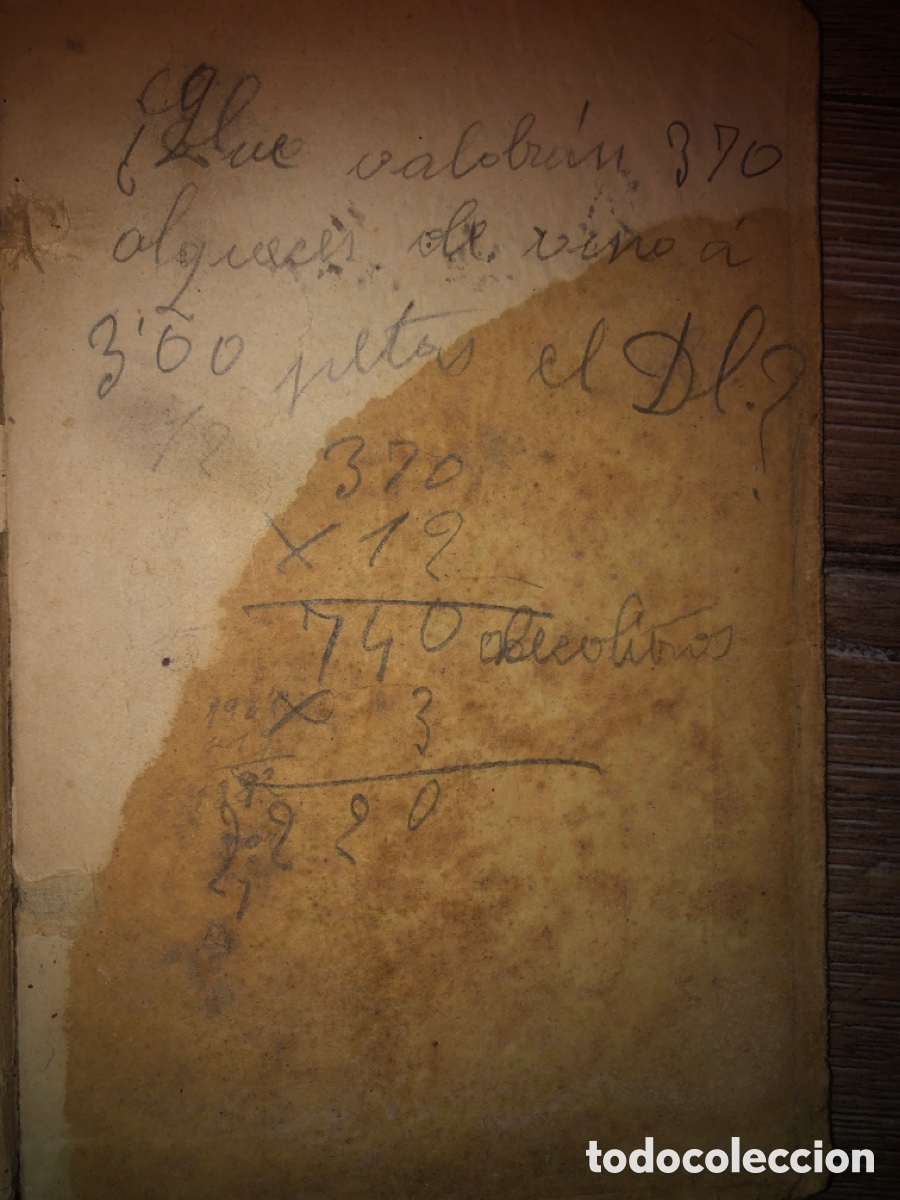 ¿Que valdrán 370
alqueces de vino á
3'00 ptas el Dl.?
12
370
× 12
740 decolitros
× 3
2 2 2 0
todocoleccion